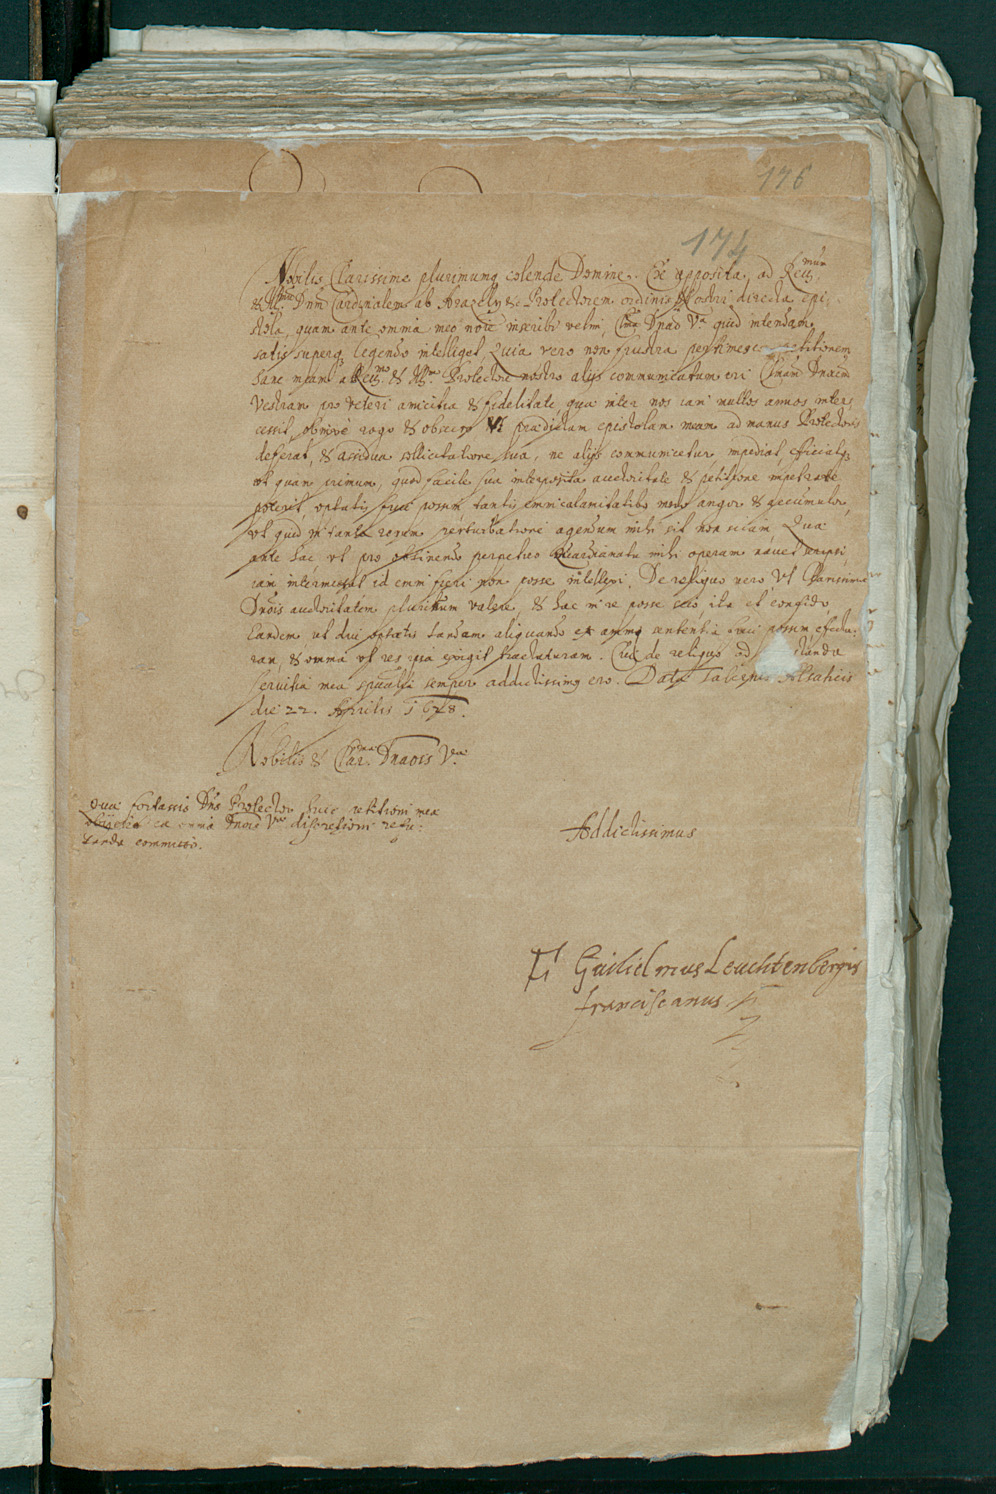 176
174
Nobilis Clarissime plurimumq colende Domine. Ex apposita ad Reu.mum
& Ill.mum Dnm Cardinalem ab Aracely & Protectorem ordinis Nostri directa epi,
stola, quam ante omnia meo noie inscribi velim, Dnao V.a quid intendam
satis superq legendo intelliget, Quia vero non frustra pertimesco petitionem
hanc meam a Reu.mo & Ill.mo Protectore nostro alijs communicatum iri
Vestram pro veteri amicitia & fidelitate, qua inter nos iam multos annos inter,
cessit, obnixe rogo & obsecro Vt praedictam epistolam meam ad manus Protectoris
deferat, & assidua sollicitatione sua, ne alijs communicetur impediat, efficiatq
vt quam primum, quod facile sua interposita auctoritate & petitione impetrare
poterit, optatis frui possim tantis enim calamitatibs modo angor & accumulor,
vt quid in tanta rerum perturbatione agendum mihi sit non sciam. Qua
ante hac vt pro obtinendo perpetuo Guardianatu mihi operam navet
iam intermittat id enim fieri non posse intellexi. De reliquo vero Vt Clarissimae
Dnois auctoritatem plurimum valere, & hac in re posse scio ita et confido
Eandem ut diu optatis tandem aliquando ex animi sententia frui possim effectu,
ram & omnia vt res ipsa exigit tractaturam. Cui de reliquo ad
servitia mea semper addictissimus ero. Dat. Tabernis Alsaticis
die 22. Aprilis 1628.
Nobilis & Clar.mae Dnaois V.ae
Quae fortassis Dns Protector huic petitioni meae
obijciet ea omnia Dnois V.ae discretioni refu,
tanda committo.
Addictissimus
F Guilielmus Leuchtenbergis
franciscanus